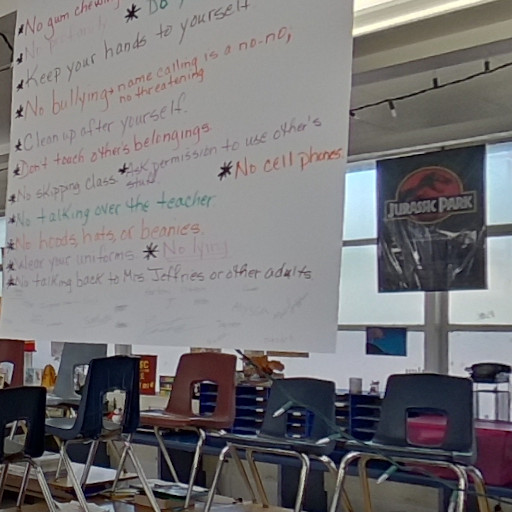 *No gum chewing
* Do
*No profanity
*Keep your hands to yourself
*No bullying + name calling is a no-no;
no threatening
*Clean up after yourself.
*Don't touch other's belongings.
*No skipping class. *Ask permission to use other's
stuff.
*No cell phones.
*No talking over the teacher
*No hoods, hats, or beanies.
*Wear your uniforms. *No lying
*No talking back to Mrs Jeffries or other adults
JURASSIC PARK